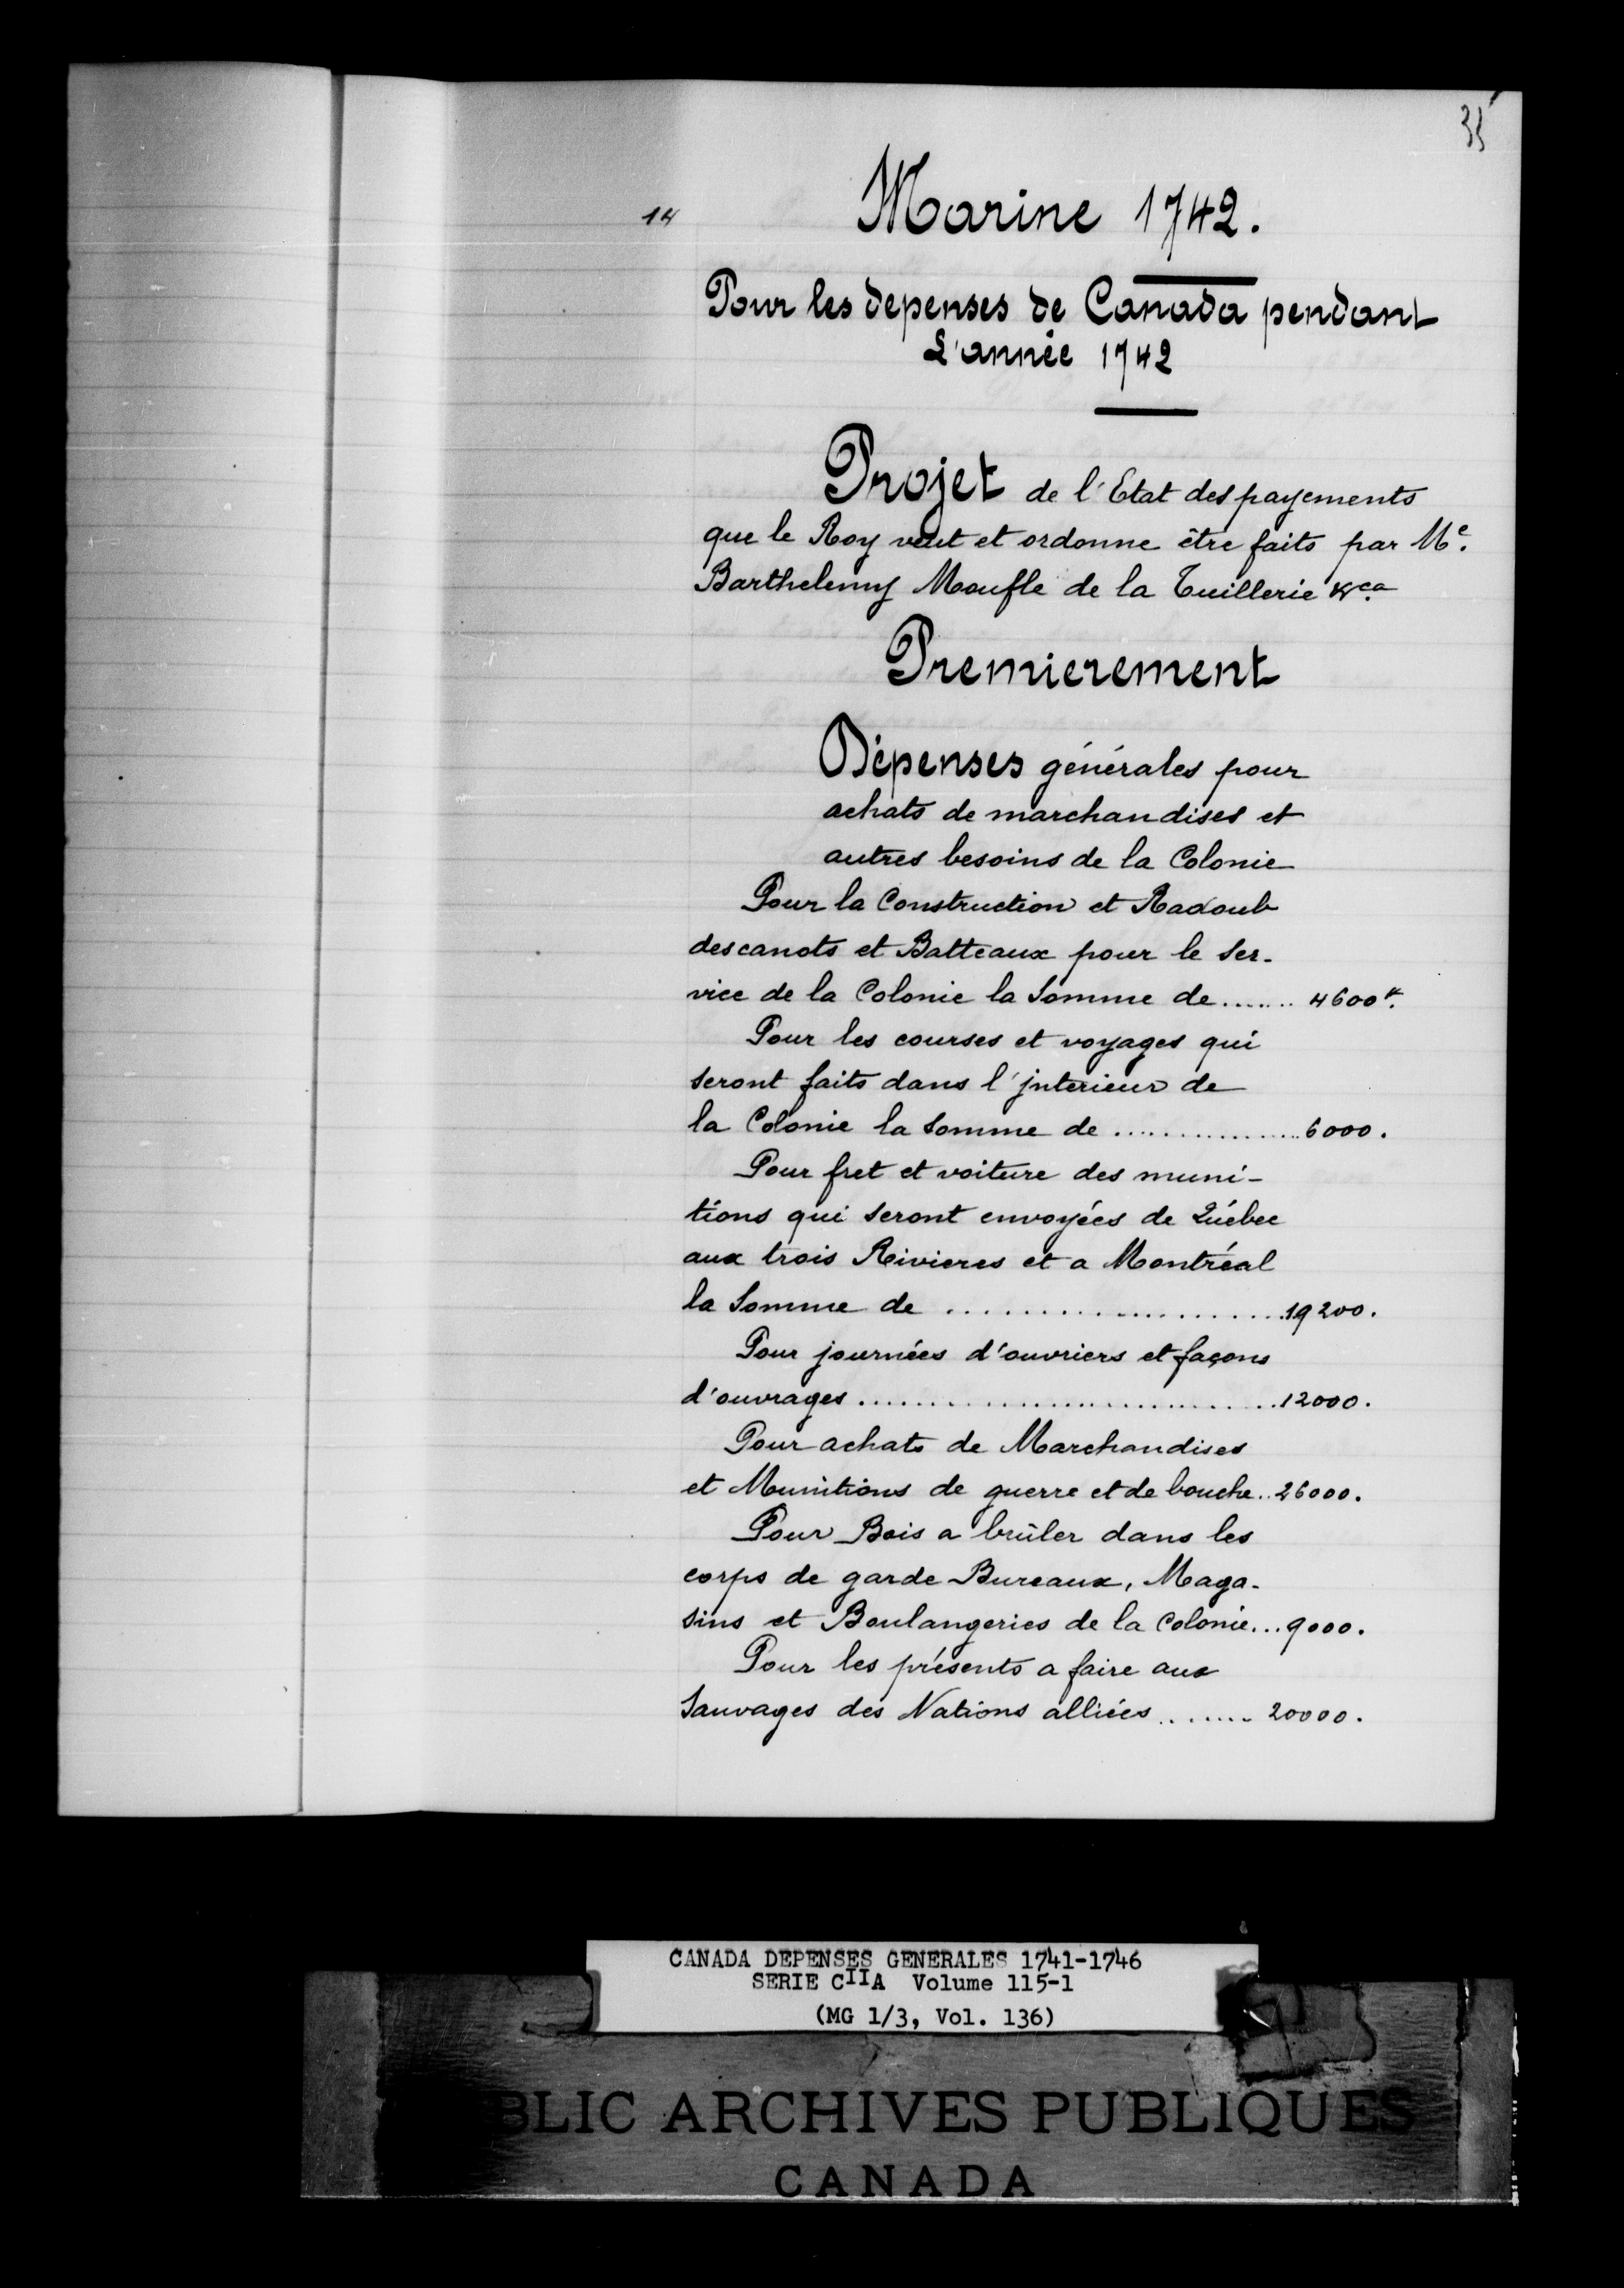 35
14
Marine 1742.
Pour les depenses de Canada pendant
L'année 1742
Projet de l'Etat des payements
que le Roy veut et ordonne être faits par Me.
Barthelemy Moufle de la Tuillerie &ca
Premierement
Dépenses générales pour
achats de marchandises et
autres besoins de la Colonie
Pour la Construction et Radoub
des canots et Batteaux pour le Ser-
vice de la Colonie la Somme de ....... 4600tt.
Pour les courses et voyages qui
seront faits dans l'jnterieur de
la Colonie la somme de ................ 6000.
Pour fret et voiture des muni-
tions qui seront envoyées de Québec
aux trois Rivieres et a Montréal
la Somme de .................... 19200.
Pour journées d'ouvriers et façons
d'ouvrages .......................... 12000.
Pour achats de Marchandises
et Munitions de guerre et de bouche.. 26000.
Pour Bois a brûler dans les
corps de garde Bureaux, Maga-
sins et Boulangeries de la Colonie... 9000.
Pour les présents a faire aux
Sauvages des Nations alliées ....... 20000.
CANADA DEPENSES GENERALES 1741-1746
SERIE CIIA Volume 115-1
(MG 1/3, Vol. 136)
BLIC ARCHIVES PUBLIQUES
CANADA